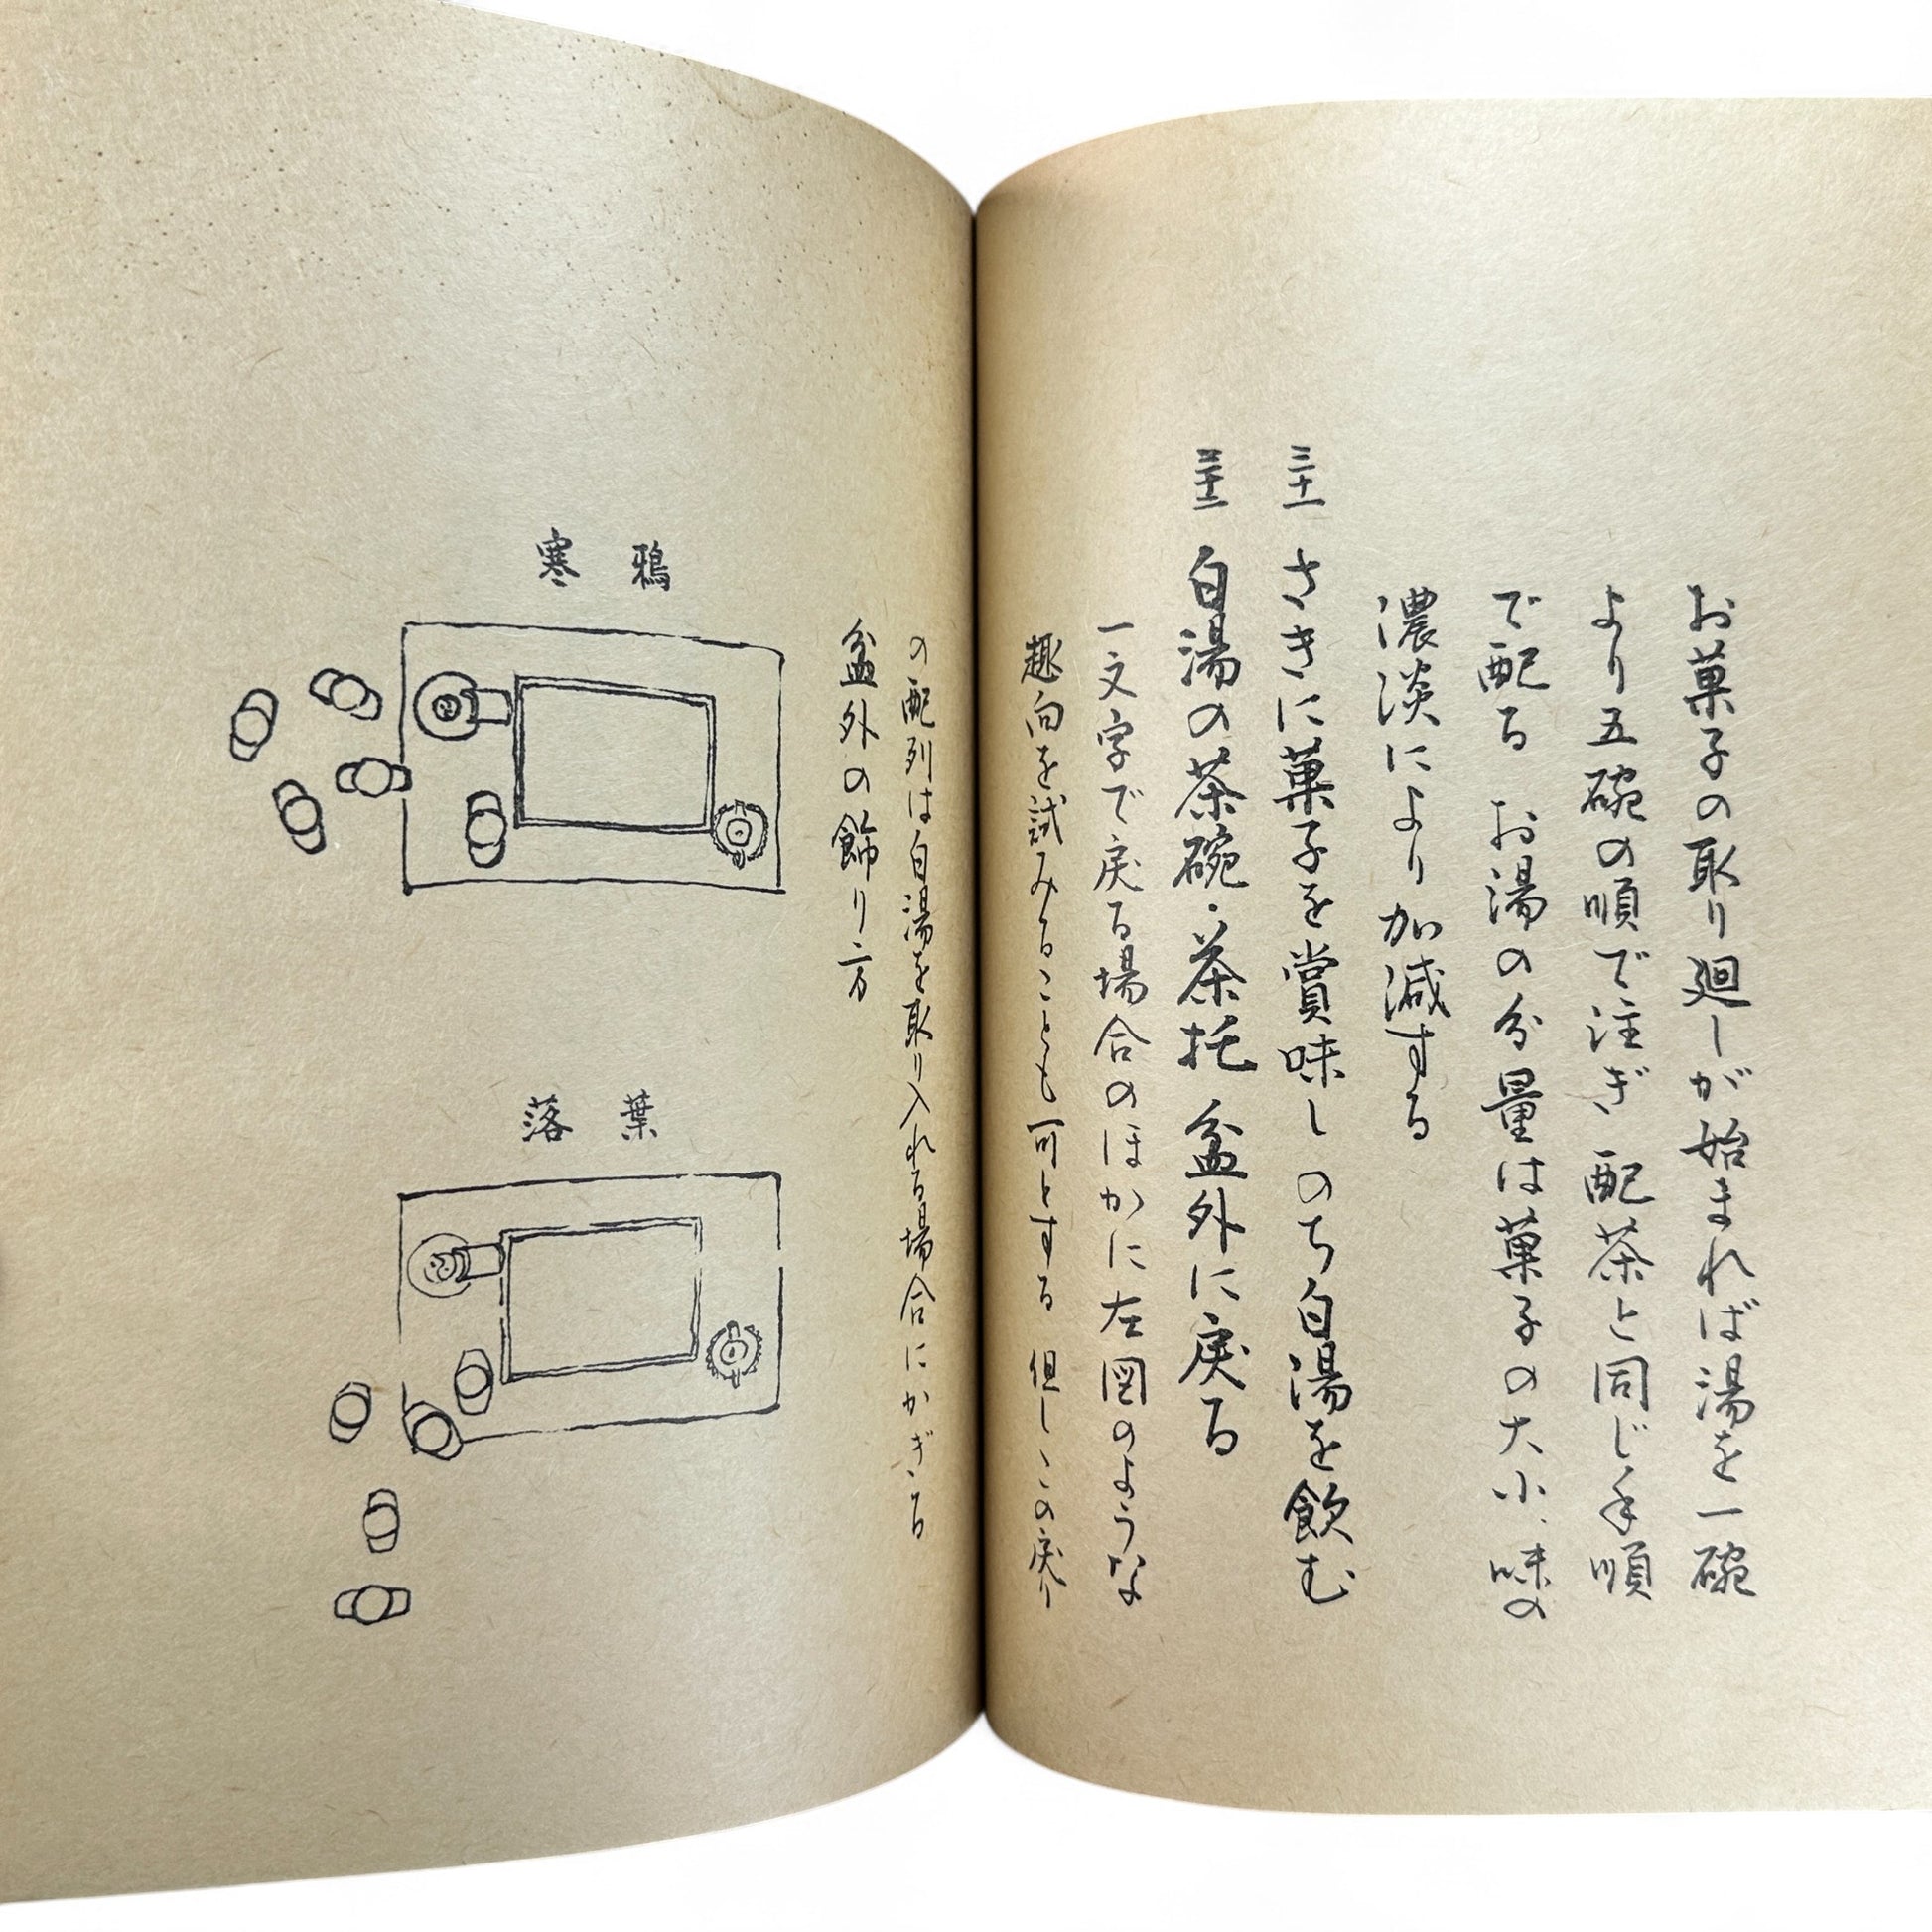 お菓子の取り廻しが始まれば湯を一碗
より五碗の順で注ぎ 配茶と同じ手順
で配る お湯の分量は菓子の大小、味の
濃淡により加減する
三十一 さきに菓子を賞味し のち白湯を飲む
三十二 白湯の茶碗・茶托 盆外に戻る
一文字で戻る場合のほかに左図のような
趣向を試みることも可とする 但しこの戻り
の配列は白湯を取り入れる場合にかぎる
盆外の飾り方
寒鴉
落葉